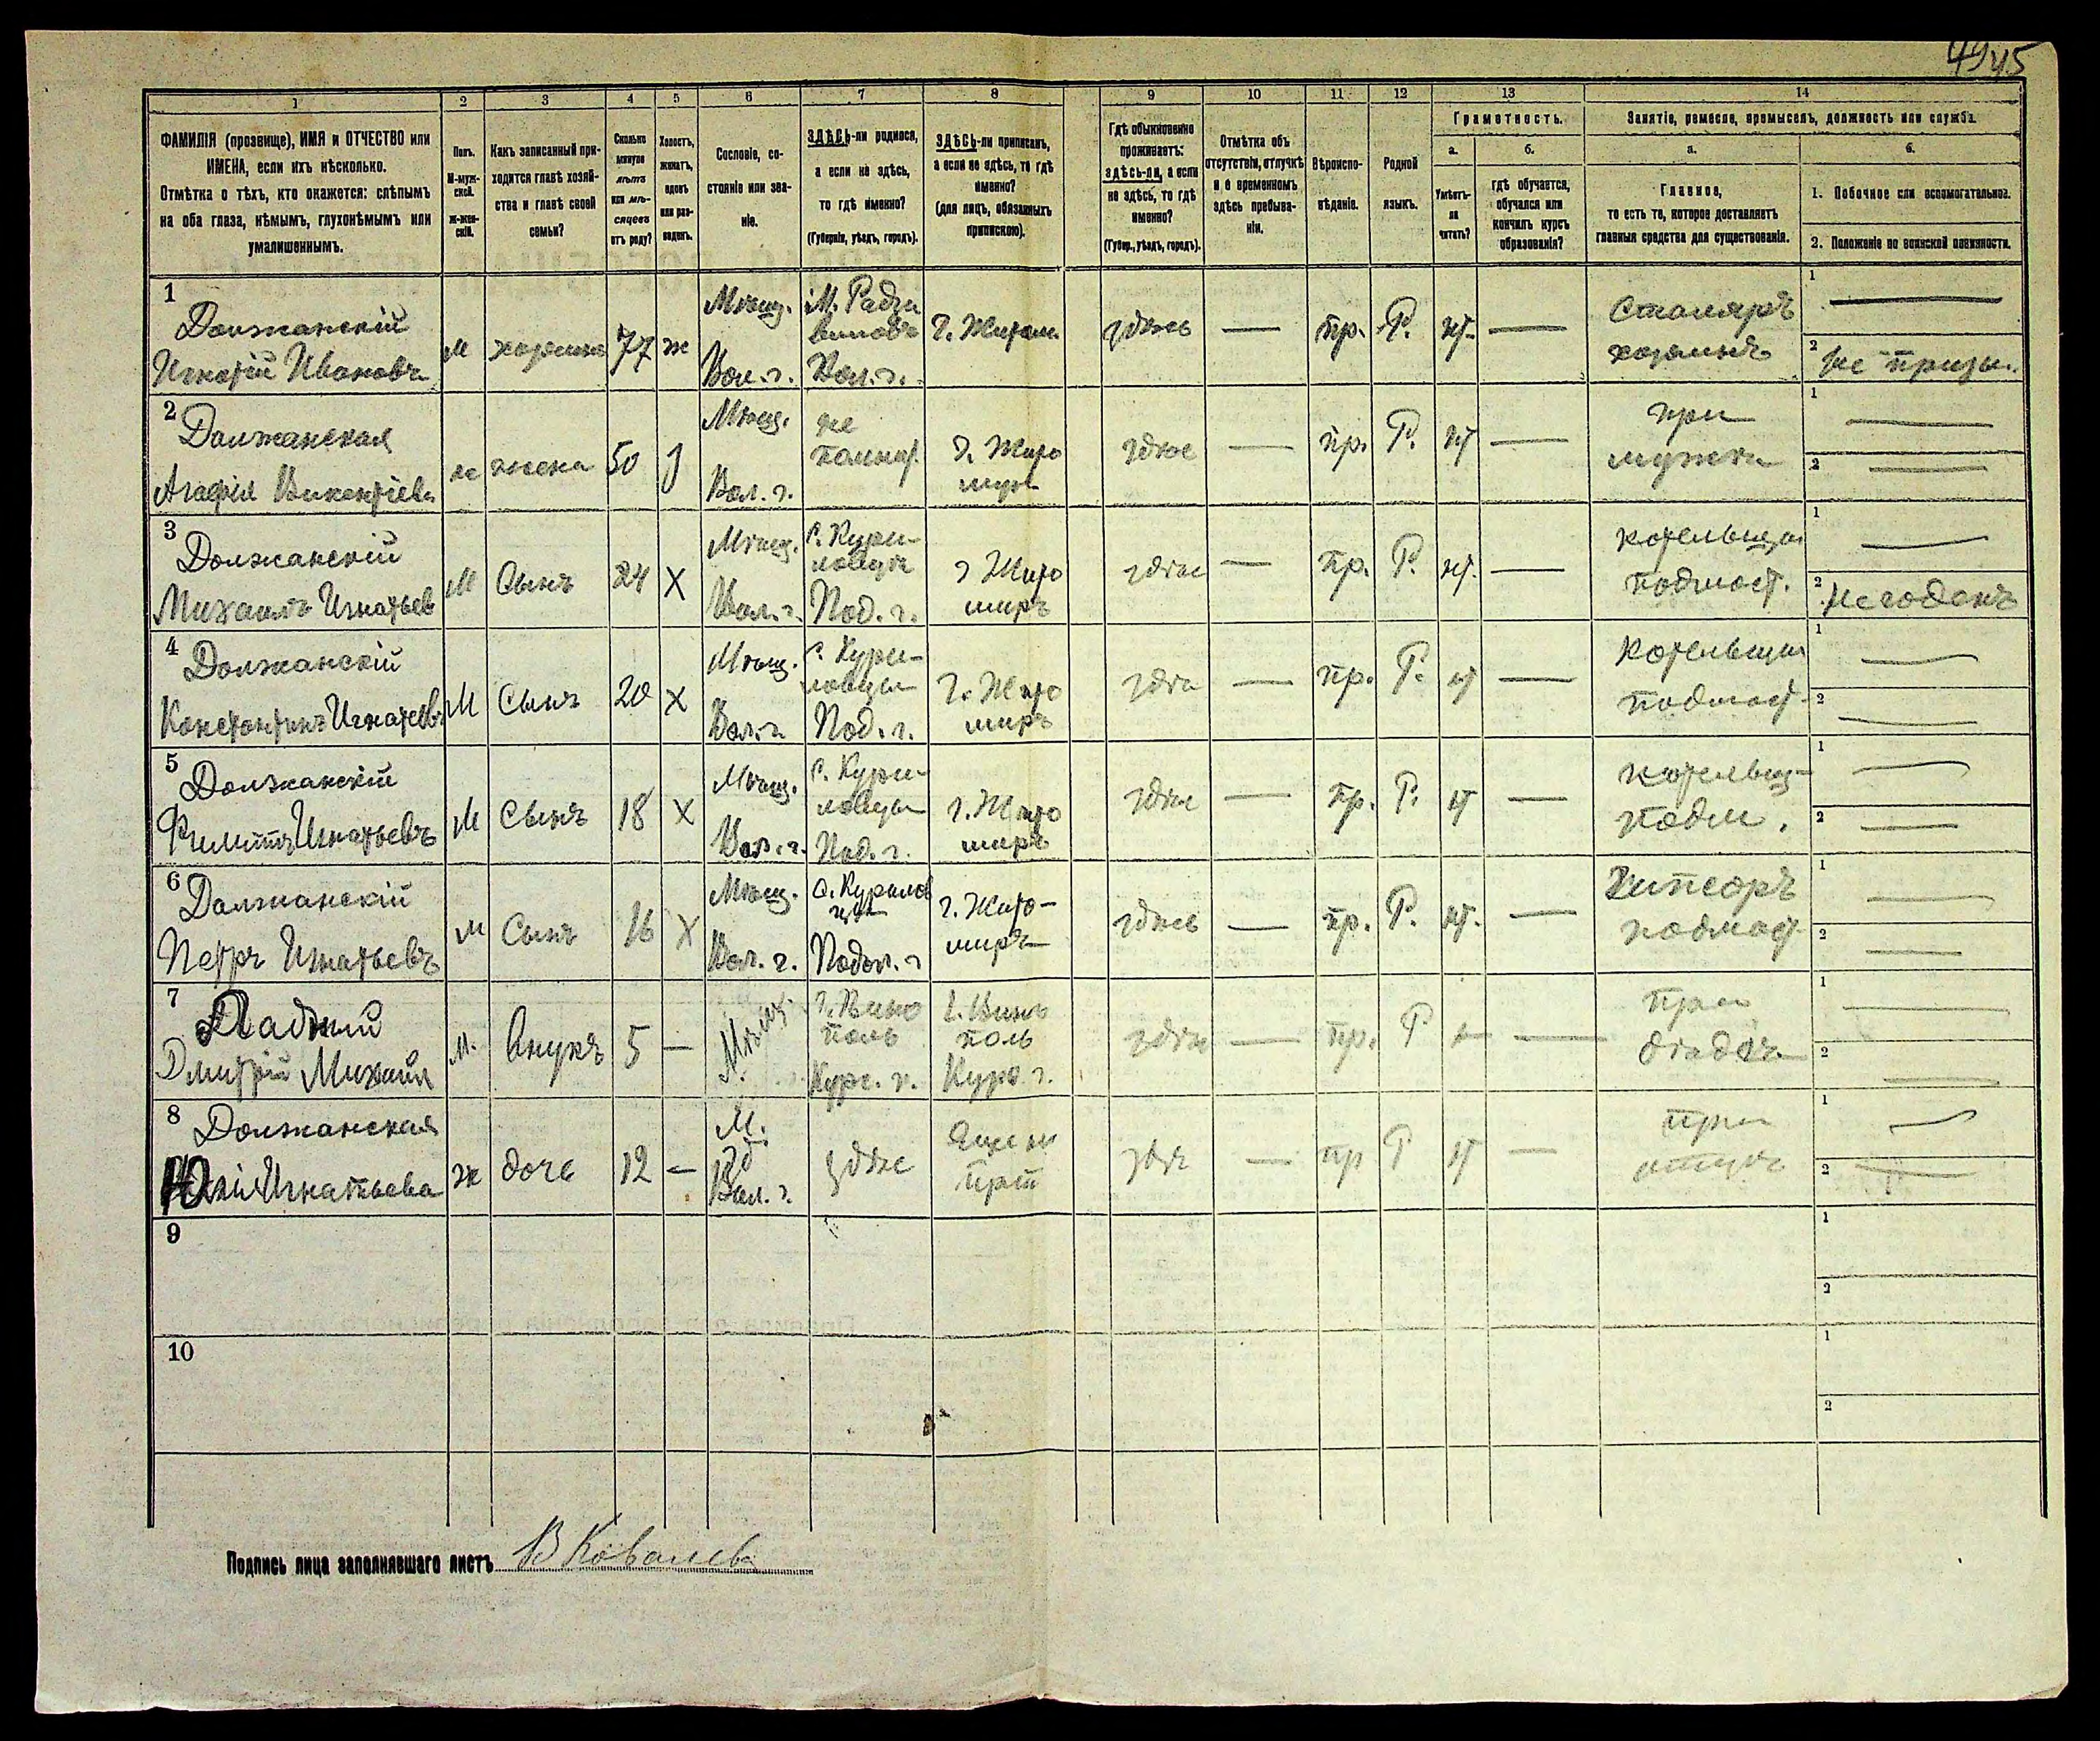 4945
1 2 3 4 5 6 7 8 9 10 11 12 13 14
ФАМИЛІЯ (прозвище), ИМЯ и ОТЧЕСТВО или
ИМЕНА, если ихъ нѣсколько.
Отмѣтка о тѣхъ, кто окажется: слѣпымъ
на оба глаза, нѣмымъ, глухонѣмымъ или
умалишеннымъ.
Полъ.
М-муж-
ской.
Ж-жен-
скій.
Какъ записанный при-
ходится главѣ хозяй-
ства и главѣ своей
семьи?
Сколько
минуло
лѣтъ
или мѣ-
сяцевъ
отъ роду?
Холостъ,
женатъ,
вдовъ
или раз-
веденъ.
Сословіе, со-
стояніе или зва-
ніе.
ЗДѢСЬ-ли родился,
а если не здѣсь,
то гдѣ именно?
(Губернія, уѣздъ, городъ).
ЗДѢСЬ-ли приписанъ,
а если не здѣсь, то гдѣ
именно?
(для лицъ, обязанныхъ
припискою).
Гдѣ обыкновенно
проживаетъ:
здѣсь-ли, а если
не здѣсь, то гдѣ
именно?
(Губер., уѣздъ, городъ).
Отмѣтка объ
отсутствіи, отлучкѣ
и о временномъ
здѣсь пребыва-
ніи.
Вѣроиспо-
вѣданіе.
Родной
языкъ.
Грамотность.
а.
Умѣетъ-
ли
читать?
б.
гдѣ обучается,
обучался или
кончилъ курсъ
образованія?
Занятіе, ремесло, промыселъ, должность или служба.
а.
Главное,
то есть то, которое доставляетъ
главныя средства для существованія.
б.
1. Побочное или вспомогательное.
2. Положеніе по воинской повинности.
1
Должанскій
Игнатій Ивановъ
м
хозяинъ
77
ж
Мѣщ.
Вол. г.
М. Радзи
виловъ
Вол. г.
Г. Житом.
здѣсь
—
пр.
Р.
нт.
—
Столяръ
хозяинъ
1
—
2
не призы.
2
Должанская
Агафія Викентіева
ж
жена
50
Мѣщ.
Вол. г.
не
помнит.
г. Жито
миръ
здѣсь
—
пр.
Р.
нт
—
при
мужѣ
1
—
2
—
3
Должанскій
Михаилъ Игнатьев
М
Сынъ
24
Х
Мѣщ.
Вол. г.
С. Кури-
ловцы
Под. г.
г Жито
миръ
здѣсь
—
пр.
Р.
нт.
—
котельщик
подмаст.
1
—
2
не годенъ
4
Должанскій
Константинъ Игнатьевъ
М
Сынъ
20
Х
Мѣщ.
Вол. г.
С. Кури-
ловцы
Под. г.
г. Жито
миръ
здѣс
—
пр.
Р.
нт
—
Котельщик
подмаст.
1
—
2
—
5
Должанскій
Филиппъ Игнатьевъ
М
Сынъ
18
Х
Мѣщ.
Вол. г.
С. Кури-
ловцы
Под. г.
г. Жито
миръ
здѣс
—
пр.
Р.
нт
—
котельщ-
подм.
1
—
2
—
6
Должанскій
Петръ Игнатьевъ
М
Сынъ
16
Х
Мѣщ.
Вол. г.
С. Курилов
цы
Подол. г
г. Жито-
миръ
здѣсь
—
пр.
Р.
нт.
—
подмаст
1
—
2
—
7
Дмитрій Михаил
М.
внукъ
5
—
Мѣщ.
поль
поль
здѣс
—
пр.
Р
—
при
дѣдѣ
1
—
2
—
8
Должанская
Игнатьева
ж
дочь
12
—
М.
Вол. г.
здѣс
здѣ
—
пр
Р
нт
—
при
отцѣ
1
—
2
—
9
1
2
10
1
2
Подпись лица заполнявшаго листъ В Ковалевъ